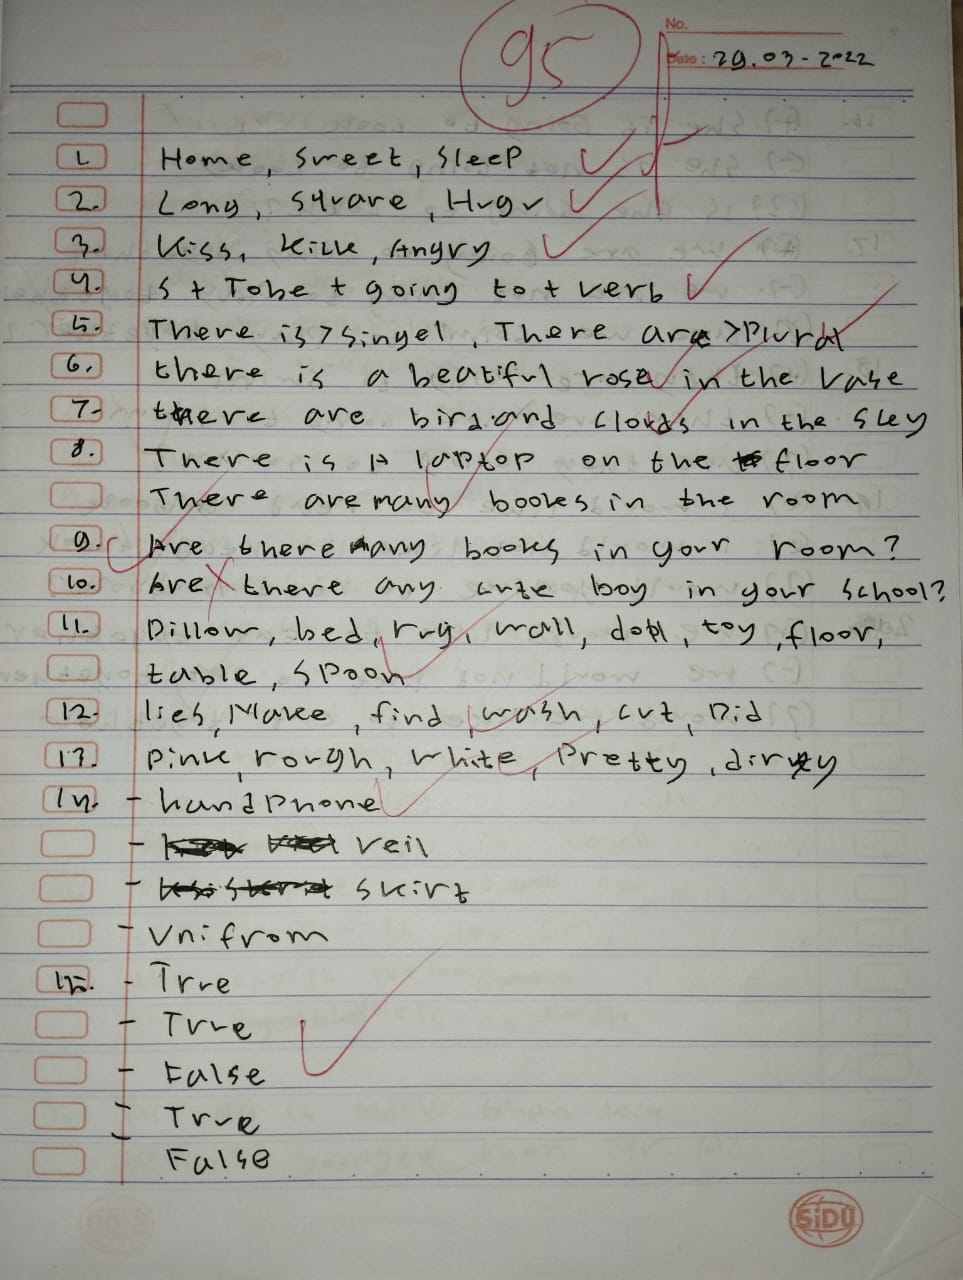 95
No.
Date : 29.03-2022
1. Home, Sweet, Sleep
2. Long, Square, Hugu
3. Kiss, Kille, Angry
4. S + Tobe + going to + verb
5. There is > Singel, There are > Plural
6. there is a beatiful rose in the vase
7. there are bird and clouds in the sky
8. There is A laptop on the floor
There are many bookes in the room
9. Are there many books in your room?
10. Are there any cute boy in your school?
11. Pillow, bed, rug, wall, doll, toy, floor,
table, spoon
12. lies, Make, find, wash, cut, Did
13. Pink, rough, white, Pretty, dirty
14. - handphone
- veil
- skirt
- Unifrom
15. - True
- True
- False
- True
False
SiDU